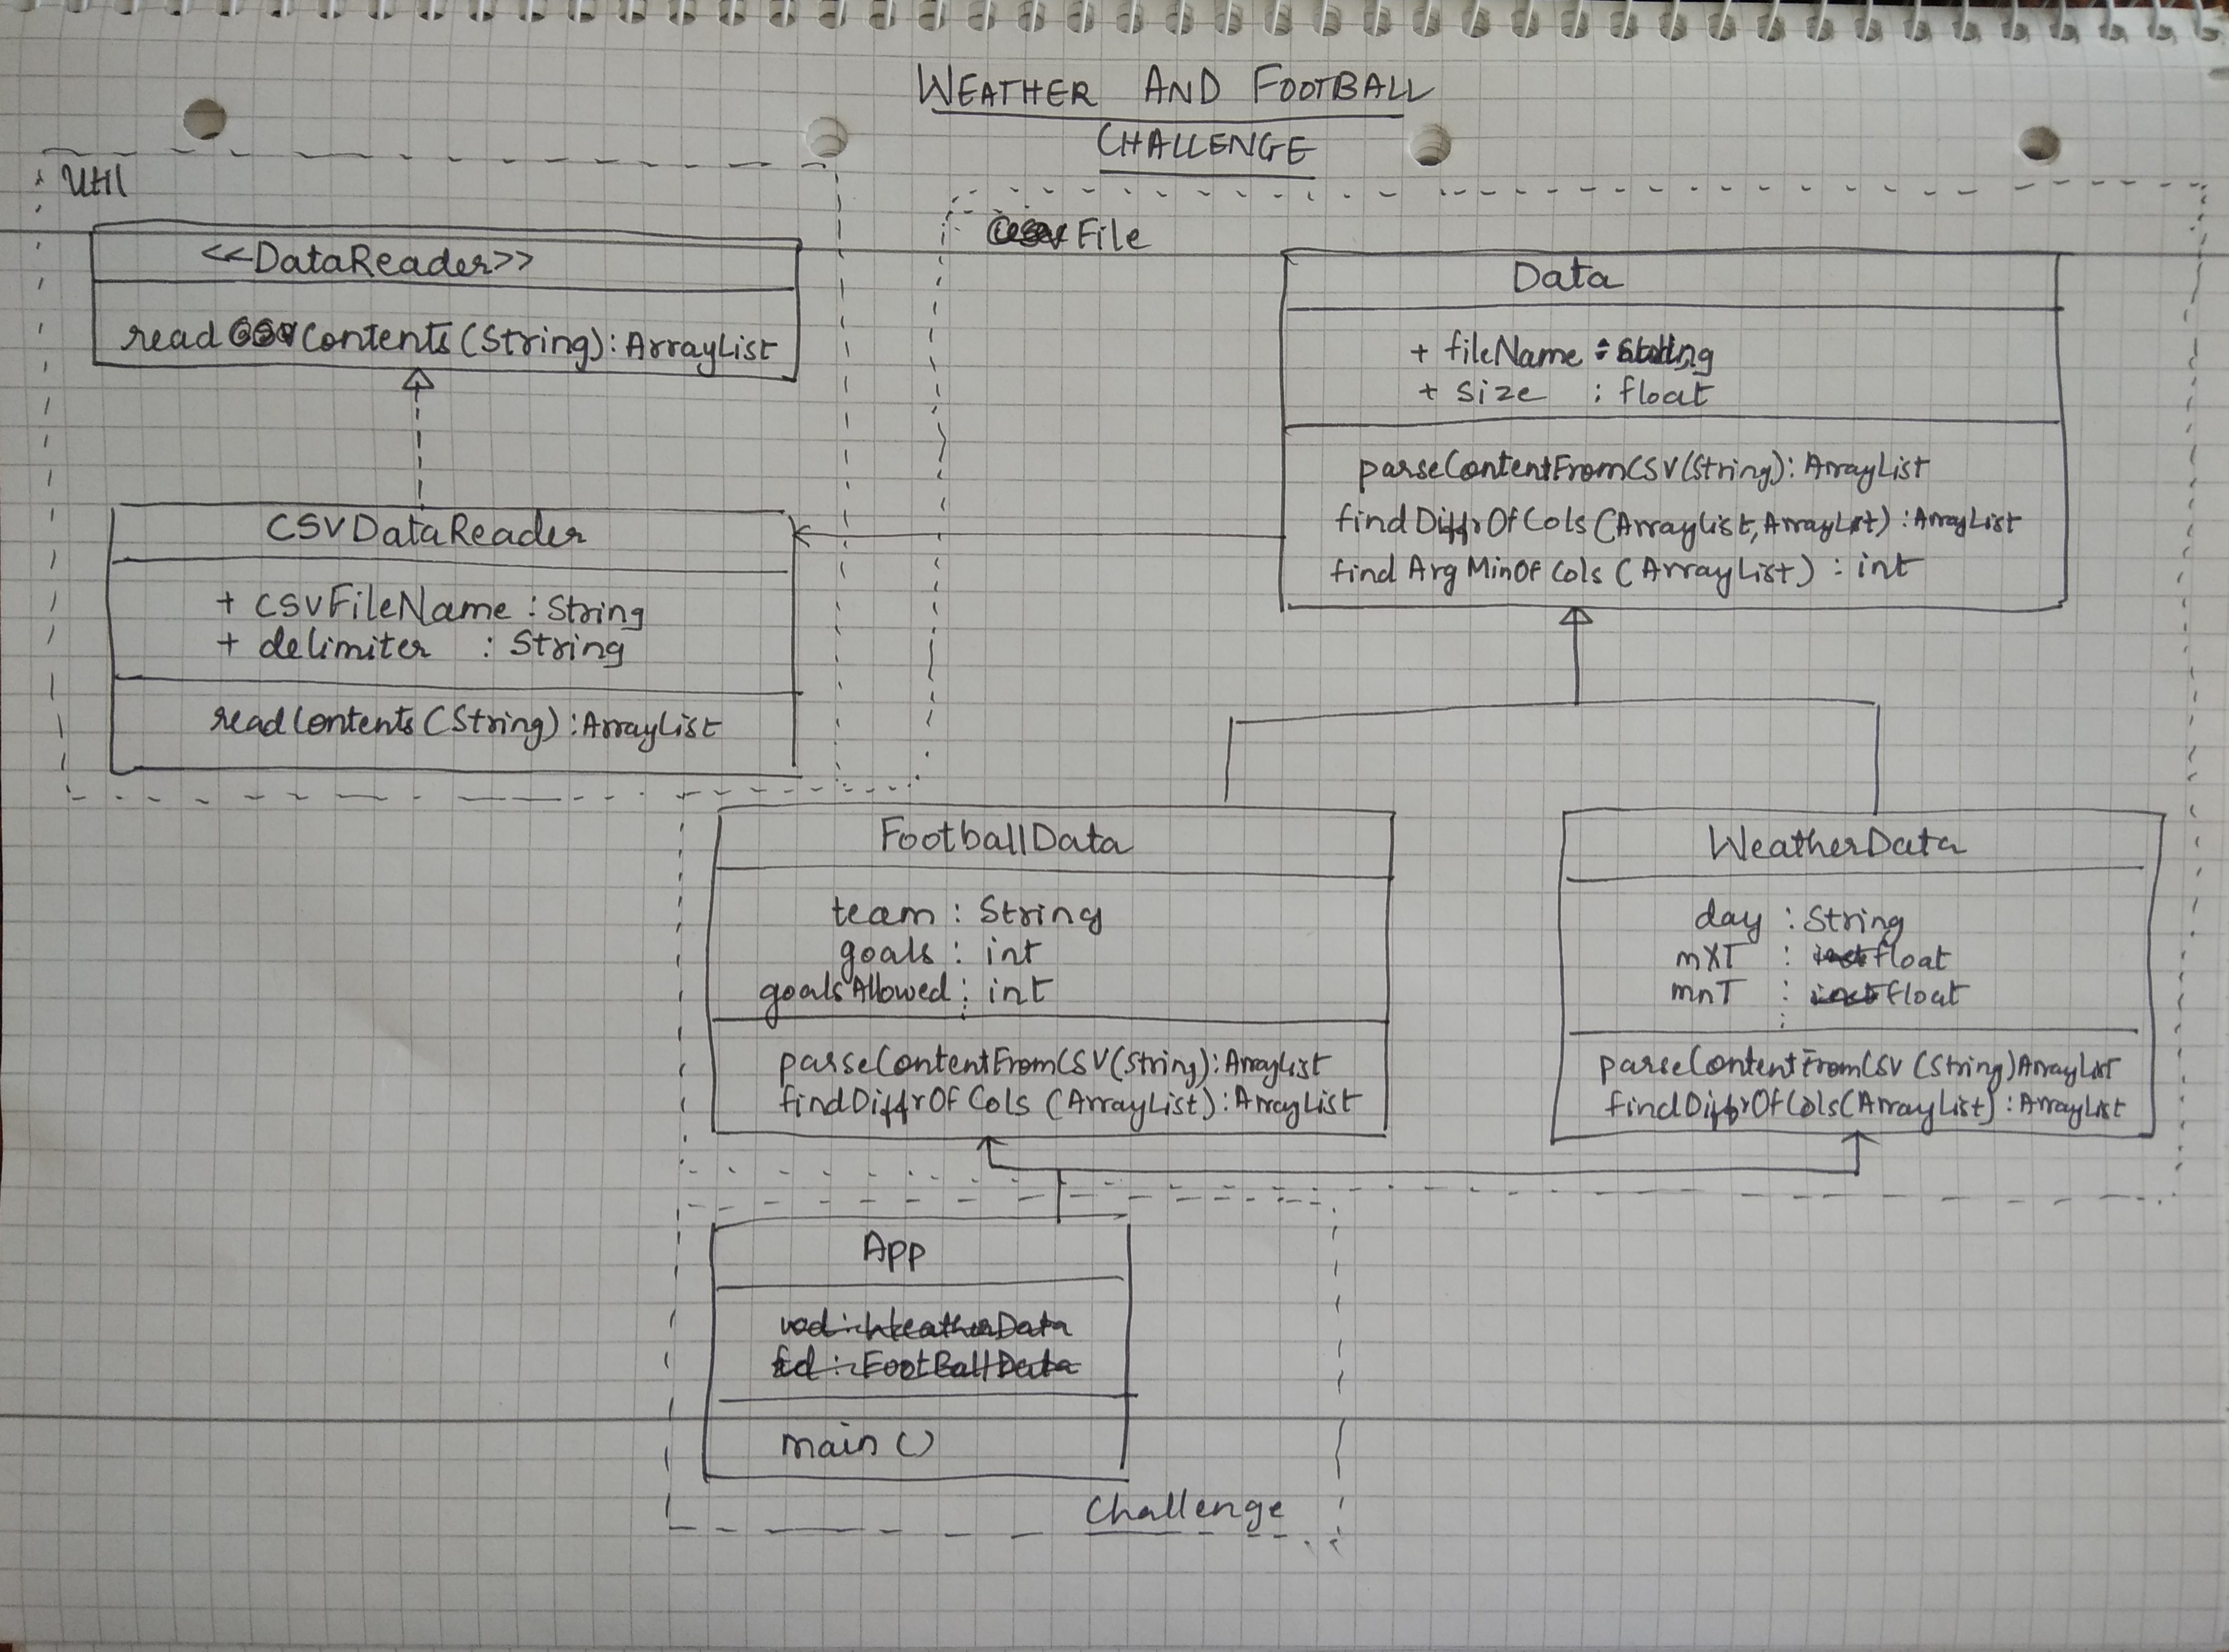 WEATHER AND FOOTBALL
CHALLENGE
Util
<<DataReader>>
readContents(String): ArrayList
CSVDataReader
+ csvFileName : String
+ delimiter : String
readContents(String) : ArrayList
File
Data
+ fileName : String
+ size : float
parseContentFromCSV(String): ArrayList
findDiffrOfCols(ArrayList, ArrayList) : ArrayList
findArgMinOfCols(ArrayList) : int
FootballData
team : String
goals : int
goalsAllowed : int
parseContentFromCSV(String): ArrayList
findDiffrOfCols (ArrayList) : ArrayList
WeatherData
day : String
mXT : float
mnT : float
parseContentFromCSV (String) ArrayList
findDiffrOfCols(ArrayList) : ArrayList
App
wd : WeatherData
fd : FootBallData
main ()
Challenge